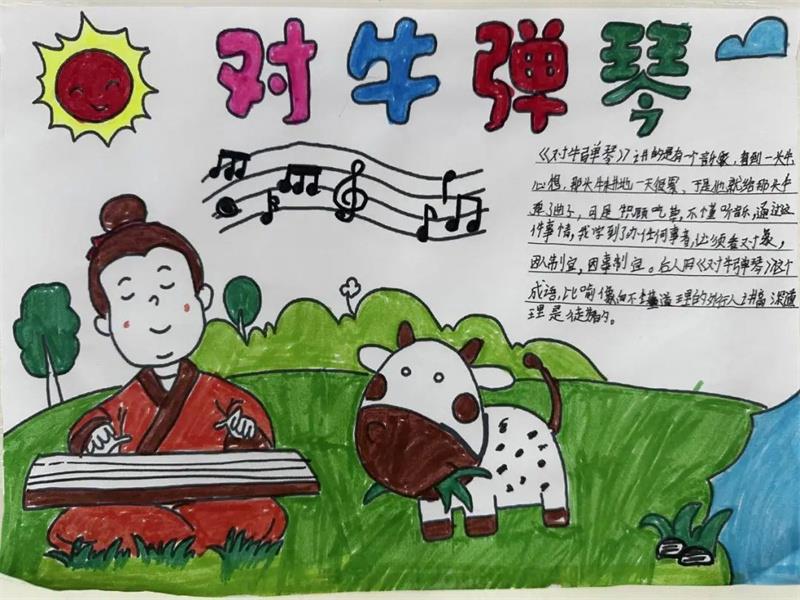 对牛弹琴
《对牛弹琴》讲的是有一个音乐家，看到一头牛
心想，那头牛耕地一天很累、于是他就给那头牛
弹了曲子，可是牛只顾吃草，不懂听音乐，通过这
件事情，我学到了办任何事者，让须看对象，
因人制宜，因事制宜。后人用《对牛弹琴》这个
成语，比喻像向不懂道理的外行人讲高深道
理是徒劳的。